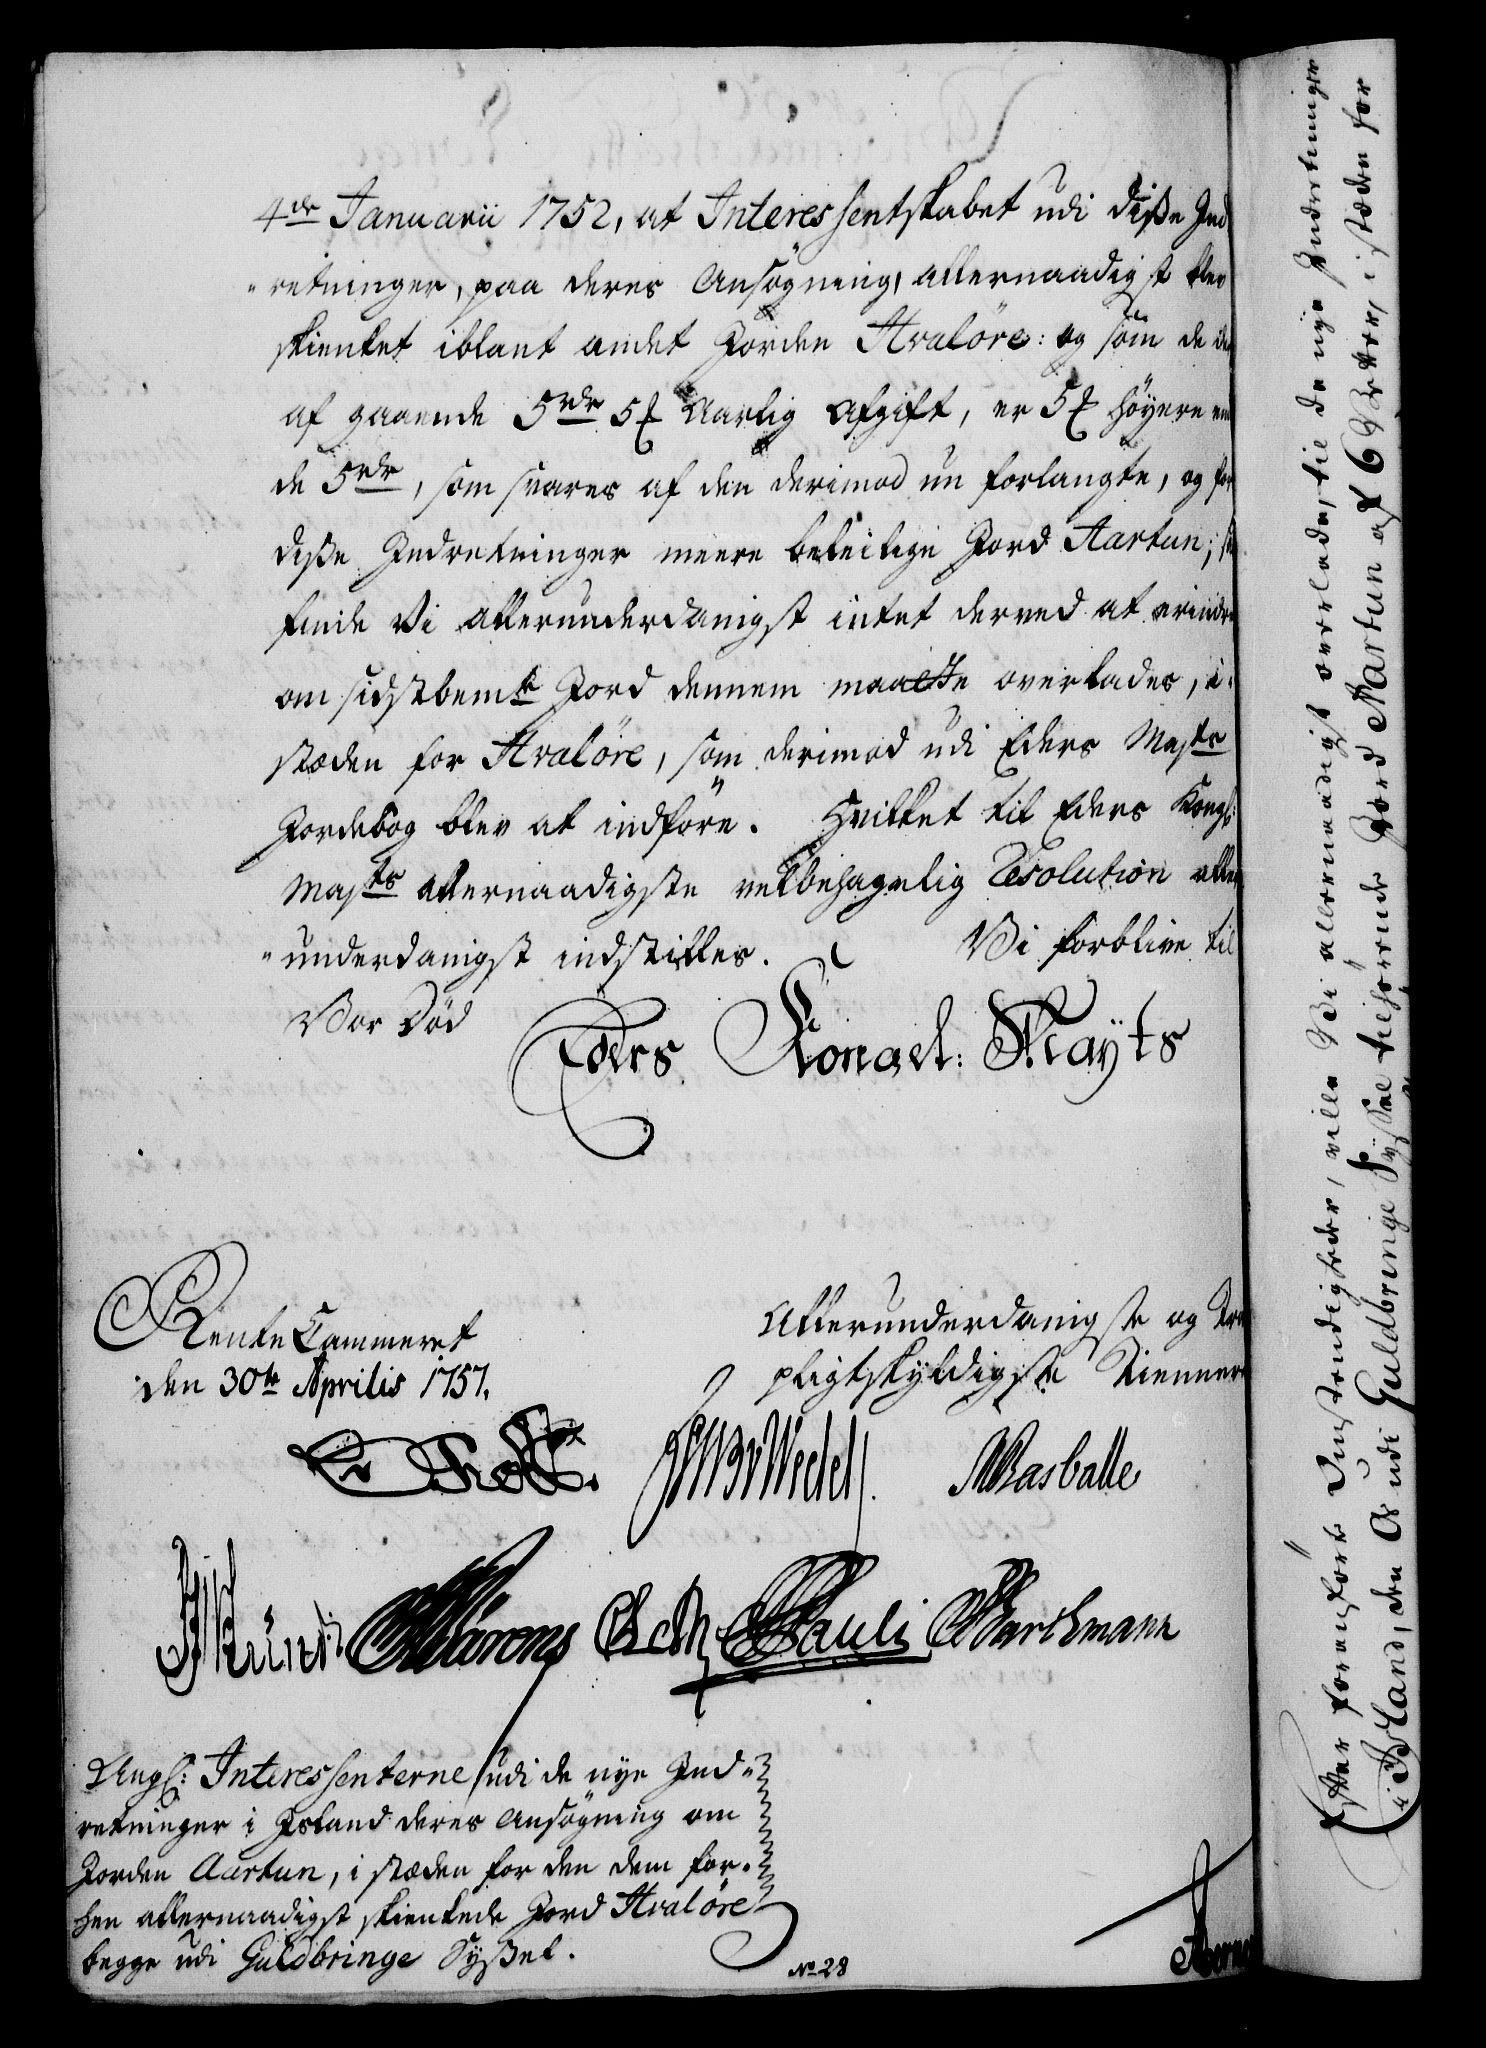 4de Januarii 1752, at Interessentskabet udi diße Ind
"retninger, paa deres Ansögning, allernaadigst blev
skienket iblant andet Jorden Hvalöre: og som de
af gaaende 5rdr 5 ß Aarlig Afgift, er 5 ß höyere en
de 5rdr, som svares af den derimod nu forlangte, og for
diße Indretninger meere beleilige Jord Aartun;
finde Vi allerunderdanigst intet derved at erindre
om sidstbemte Jord dennem maatte overlades, i-
stæden for Hvalöre, som derimod udi Eders Maysts
Jordebog blev at indföre. Hvilket til Eders Kongl:
Maysts allernaadigste velbehagelig Resolution aller
"underdanigst indstilles. Vi forblive til
Vor Död
Eders Kongel: Mayts
Rente Cammeret
den 30te Aprilis 1757.
Allerunderdanigste og
pligtskyldigste Tienner
Wedel
Rasballe
Pauli
Angl: Interessenterne udi de nye Ind-
retninger i Island deres Ansögning om
Jorden Aartun, i stæden for den dem for-
hen allernaadigst skienkede Jord Hvalöre
begge udi Guldbringe Sÿßel.
No 28
Efter foranförte Omstændigheder, ville Vi allernaadigst overlade, til de nÿe Indretninger
i Island, den Os udi Guldbringe Sÿßel tilhörende Jord Aartun af 6 , i stæden for